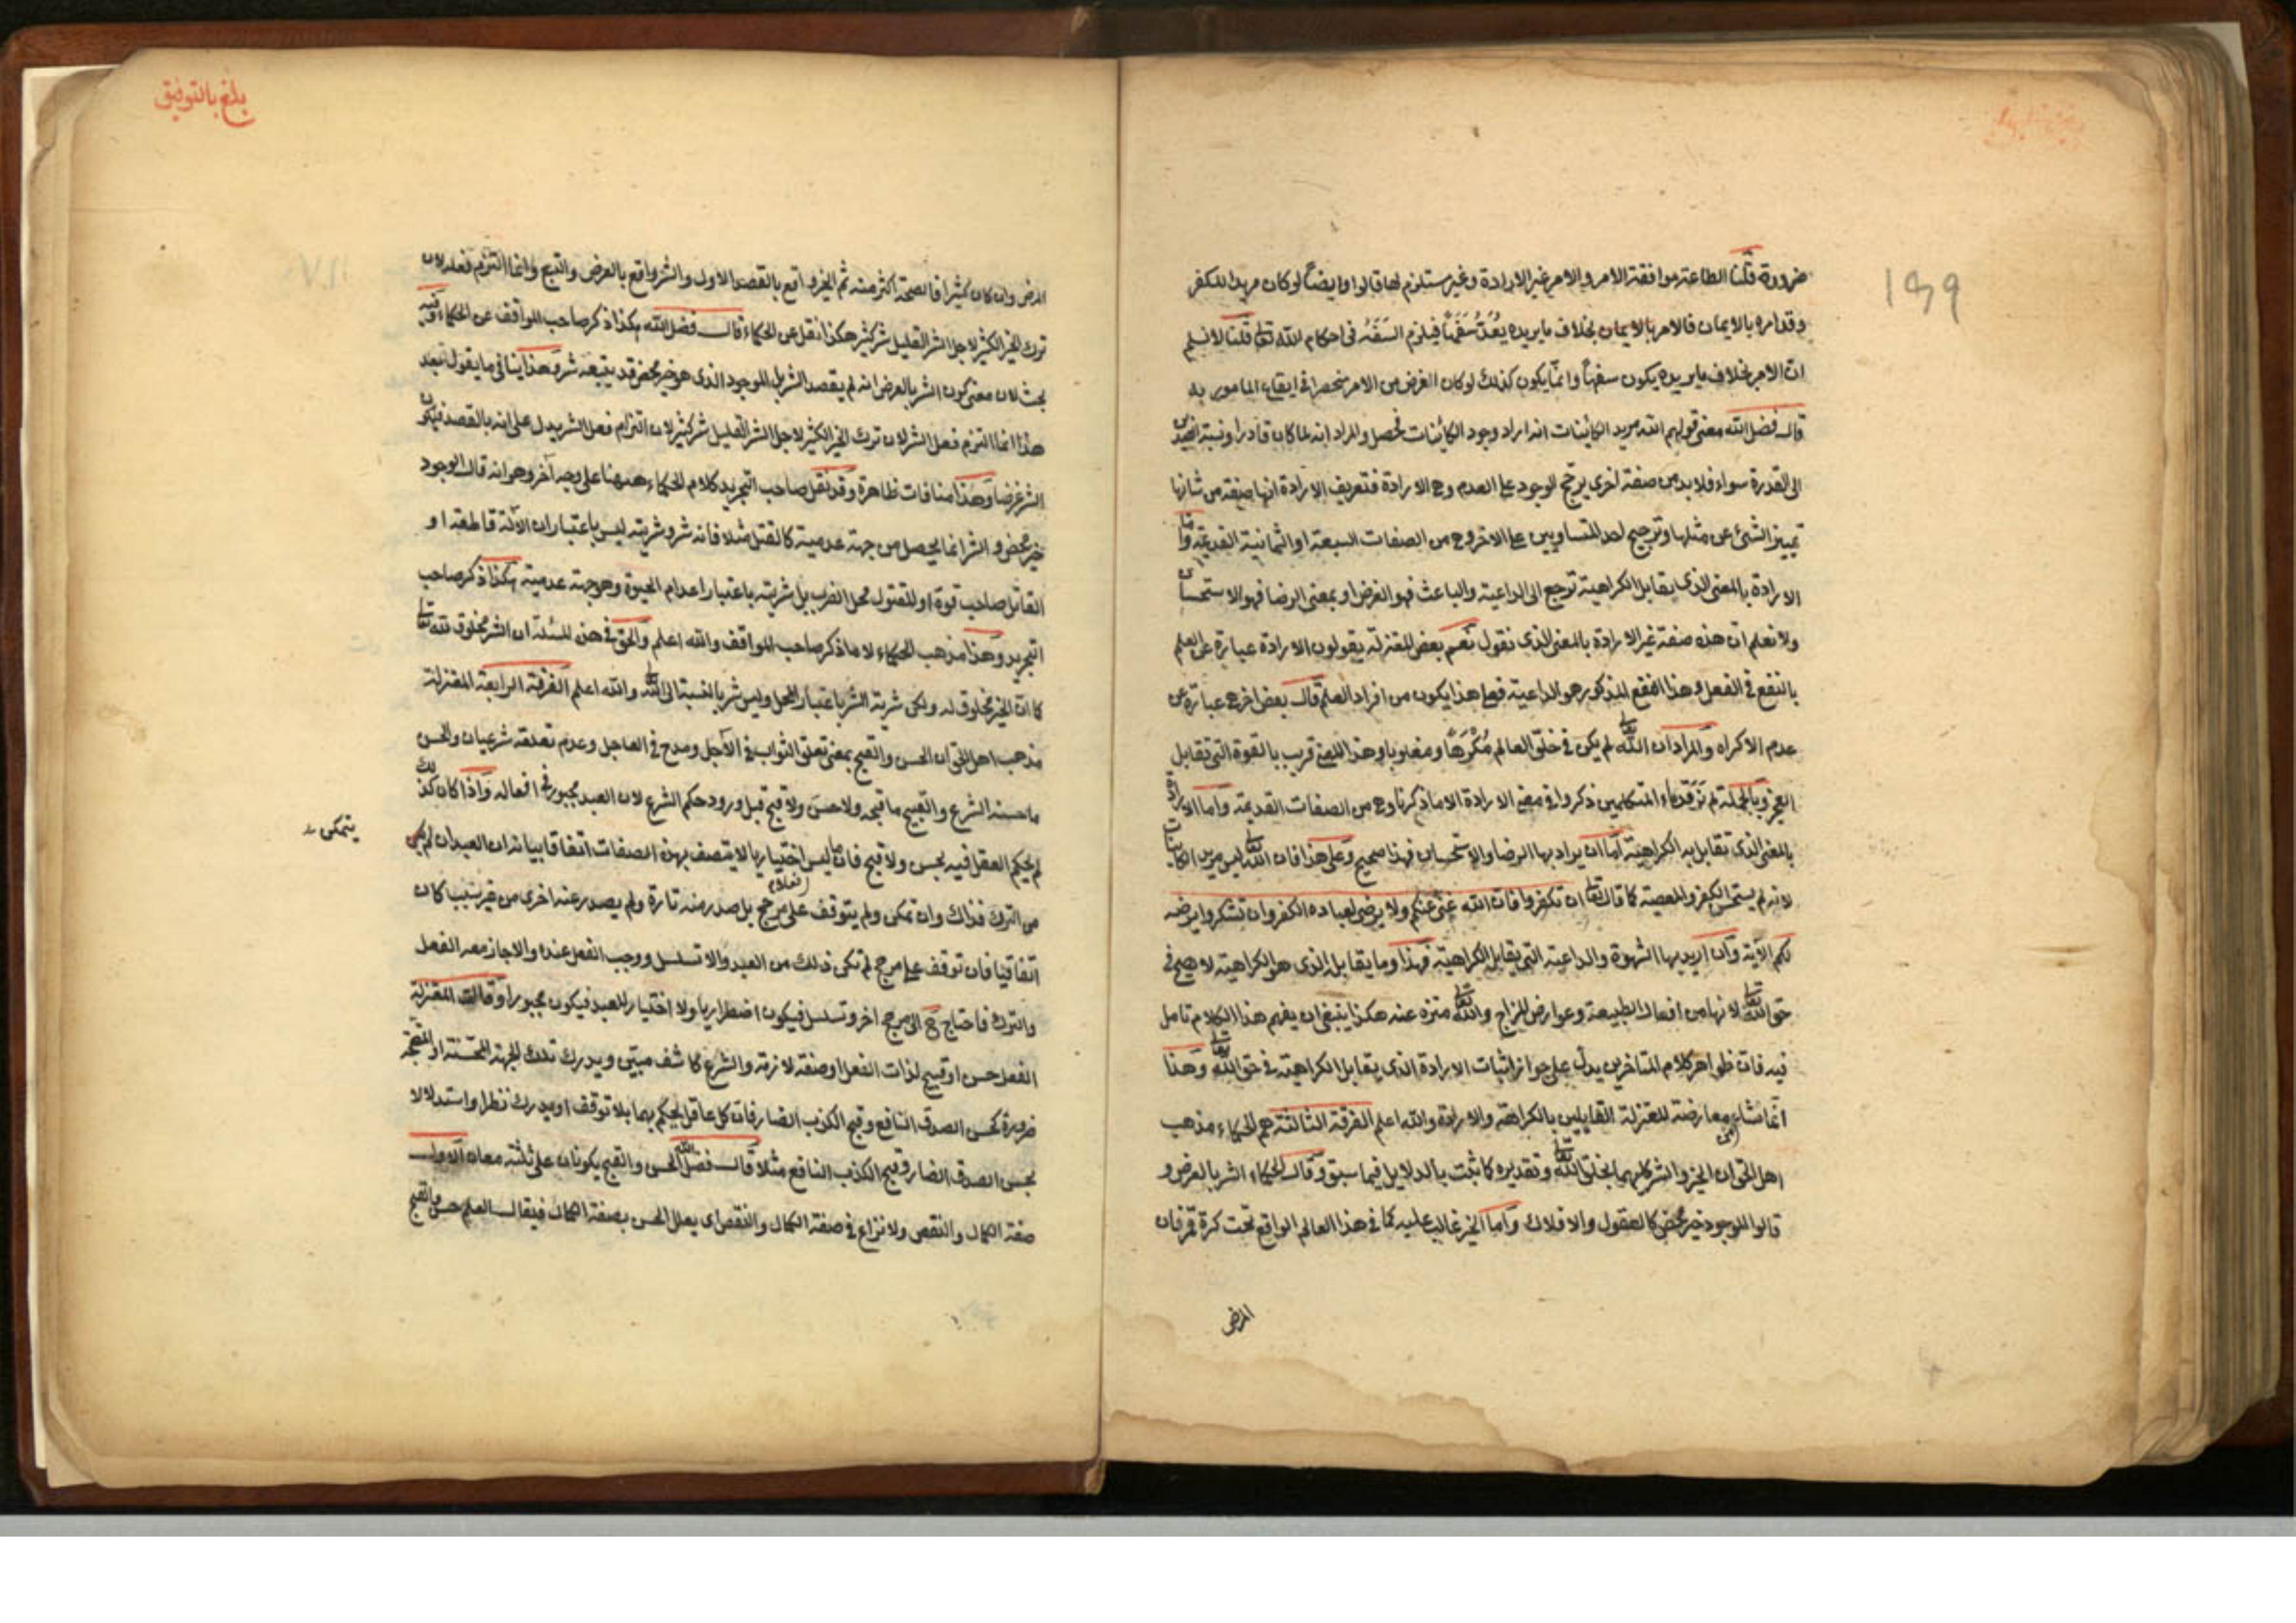 ضرورة قلنا الطاعة موافقة الامر والامر غير الارادة وغير مستلزم لها قالوا وايضاً لو كان مريدا للكفر
وقد امره بالايمان فالامر بالايمان بخلاف ما يريده يُعَدُّ سَفَهاً فيلزم السَفَهُ في احكام الله تعا قلنا لا نسلم
ان الامر بخلاف ما يريده يكون سفهاً وانما يكون كذلك لو كان الغرض من الامر منحصرا في ايقاع المامور به
قال فضل الله معنى قولهم الله مريد الكائنات انه اراد وجود الكائنات فحصل والمراد انه لما كان قادرا ونسبة الضدين
الى القدرة سواء فلا بد من صفة اخرى يرجّح الوجود على العدم وهى الارادة فتعريف الارادة انها صفة من شانها
تمييز الشئ عن مثلها وترجيح احد المتساويين على الاخر وهي من الصفات السبعة او الثمانية القديمة واما
الارادة بالمعنى الذى يقابل الكراهية ترجع الى الداعية والباعث فهو الغرض او بمعنى الرضا فهو الاستحسان
ولا نعلم ان هذه صفة غير الارادة بالمعنى الذى نقول نعم بعض المعتزلة يقولون الارادة عبارة عن العلم
بالنفع في الفعل وهذا النفع المذكور هو الداعية فعلى هذا يكون من افراد العلم قال بعض اخر هي عبارة عن
عدم الاكراه والمراد ان الله تعا لم يكن في خلق العالم مُكْرَهاً ومغلوبا وهذا المعنى قريب بالقوة التي تقابل
العجز وبالجملة لم نر قدماء المتكلمين ذكروا في معنى الارادة الا ما ذكرنا وهي من الصفات القديمة واما الارادة
بالمعنى الذى تقابل به الكراهية اما ان يراد بها الرضا والاستحسان فهذا صحيح وعلى هذا فان الله تعا ليس مريد الكائنات
لانه لم يستحسن الكفر والمعصية كما قال تعا ان تكفروا فان الله غنى عنكم ولا يرضى لعباده الكفر وان تشكروا يرضه
لكم الآية وان اريد بها الشهوة والداعية التى يقابل الكراهية فهذا وما يقابله الذى هو الكراهية لا يصح في
حق الله تعا لانها من افعال الطبيعة وعوارض المزاج والله تعا منزه عنه هكذا ينبغى ان يفهم هذا الكلام تامل
فيه فان ظواهر كلام المتاخرين يدل على جواز اثبات الارادة الذى يقابل الكراهية في حق الله تعا وهذا
انما نشاء من معارضة المعتزلة القايلين بالكراهة والارادة والله اعلم الفرقة الثالثة هم الحكماء مذهب
اهل الحق ان الخير والشر كلهما بخلق الله تعا وتقديره كما ثبت بالدلايل فيما سبق وقال الحكماء الشر بالعرض و
قالوا الموجود خير محض كالعقول والافلاك واما الخير غالب عليه كما في هذا العالم الواقع تحت كرة قمر فان
المرض
199
بلغ بالتوفيق
المرض وان كان كثيرا فالصحة اكثر منه ثم الخير واقع بالقصد الاول والشر واقع بالعرض والتبع وانما التزم فعله لان
ترك الخير الكثير لاجل الشر القليل شر كثير هكذا نقل عن الحكماء قال فضل الله هكذا ذكر صاحب المواقف عن الحكماء وفيه
بحث لان معنى كون الشر بالعرض انه لم يقصد الشر بل الموجود الذى هو خير محض قد يتبعه شر وهذا ينافي ما يقول بعد
هذا انما التزم فعل الشر لان ترك الخير الكثير لاجل الشر القليل شر كثير لان التزام فعل الشر يدل على انه بالقصد فيكون
الشر غرضا وهذا منافات ظاهرة وقد نقل صاحب التجريد كلام الحكماء ههنا على وجه آخر وهو انه قال الوجود
خير محض والشر انما يحصل من جهة عدمية كالقتل مثلا فانه شر وشريته ليس باعتبار ان الآلة قاطعة او
القاتل صاحب قوة او المقتول محل الضرب بل شريته باعتبار اعدام الحيوة وهو جهة عدمية هكذا ذكر صاحب
التجريد وهذا مذهب الحكماء لا ما ذكر صاحب المواقف والله اعلم والحق في هذه المسئلة ان الشر مخلوق لله تعا
كما ان الخير مخلوق له ولكن شرية الشر باعتبار المحل وليس شر بالنسبة الى الله تعا والله اعلم الفرقة الرابعة المعتزلة
مذهب اهل الحق ان الحسن والقبح بمعنى تعلق الثواب في الآجل ومدح في العاجل وعدم تعلقه شرعيان والحسن
ما حسنه الشرع والقبيح ما قبحه ولا حسن ولا قبح قبل ورود حكم الشرع لان العبد مجبور في افعاله واذا كان كذلك
لم يحكم العقل فيه بحسن ولا قبح فان ما ليس اختياريا لا يتصف بهذه الصفات اتفاقا بيانه ان العبد ان لم يكن
يتمكن
من الترك فذاك وان تمكن ولم يتوقف على مرجح بل صدر منه تارة ولم يصدر عنه اخرى من غير سبب كان
اتفاقيا فان توقف على مرجح لم تكن ذلك من العبد والا تسلسل ووجب الفعل عنده والا جاز معه الفعل
والترك فاحتاج ح الى مرجح اخر وتسلسل فيكون اضطراريا ولا اختيار للعبد فيكون مجبورا وقالت المعتزلة
الفعل حسن او قبيح لذات الفعل او صفة لازمة والشرع كاشف مبين ويدرك تلك الجهة المحسنة او المقبحة
ضرورة كحسن الصدق النافع وقبح الكذب الضار فان كل عاقل يحكم بهما بلا توقف او يدرك نظرا واستدلالا
بحسن الصدق الضار وقبح الكذب النافع مثلا قال فضل الله الحسن والقبح يكونان على ثلثة معان الاول
صفة الكمال والنقص ولا نزاع في صفة الكمال والنقص اى يعلل الحسن بصفة الكمال فيقال العلم حسن والقبح